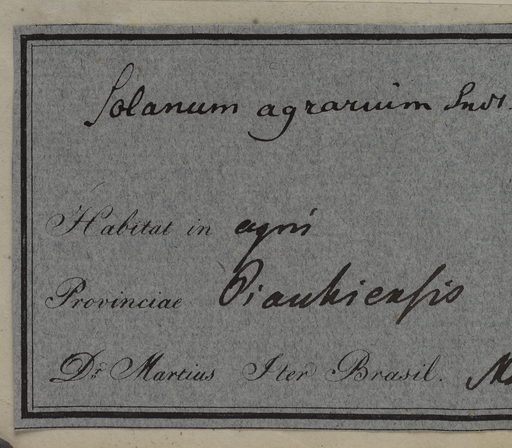 Solanum agrarium Sndt.
Habitat in agris
Provinciae Piauhiensis
Dr. Martius Iter Brasil.